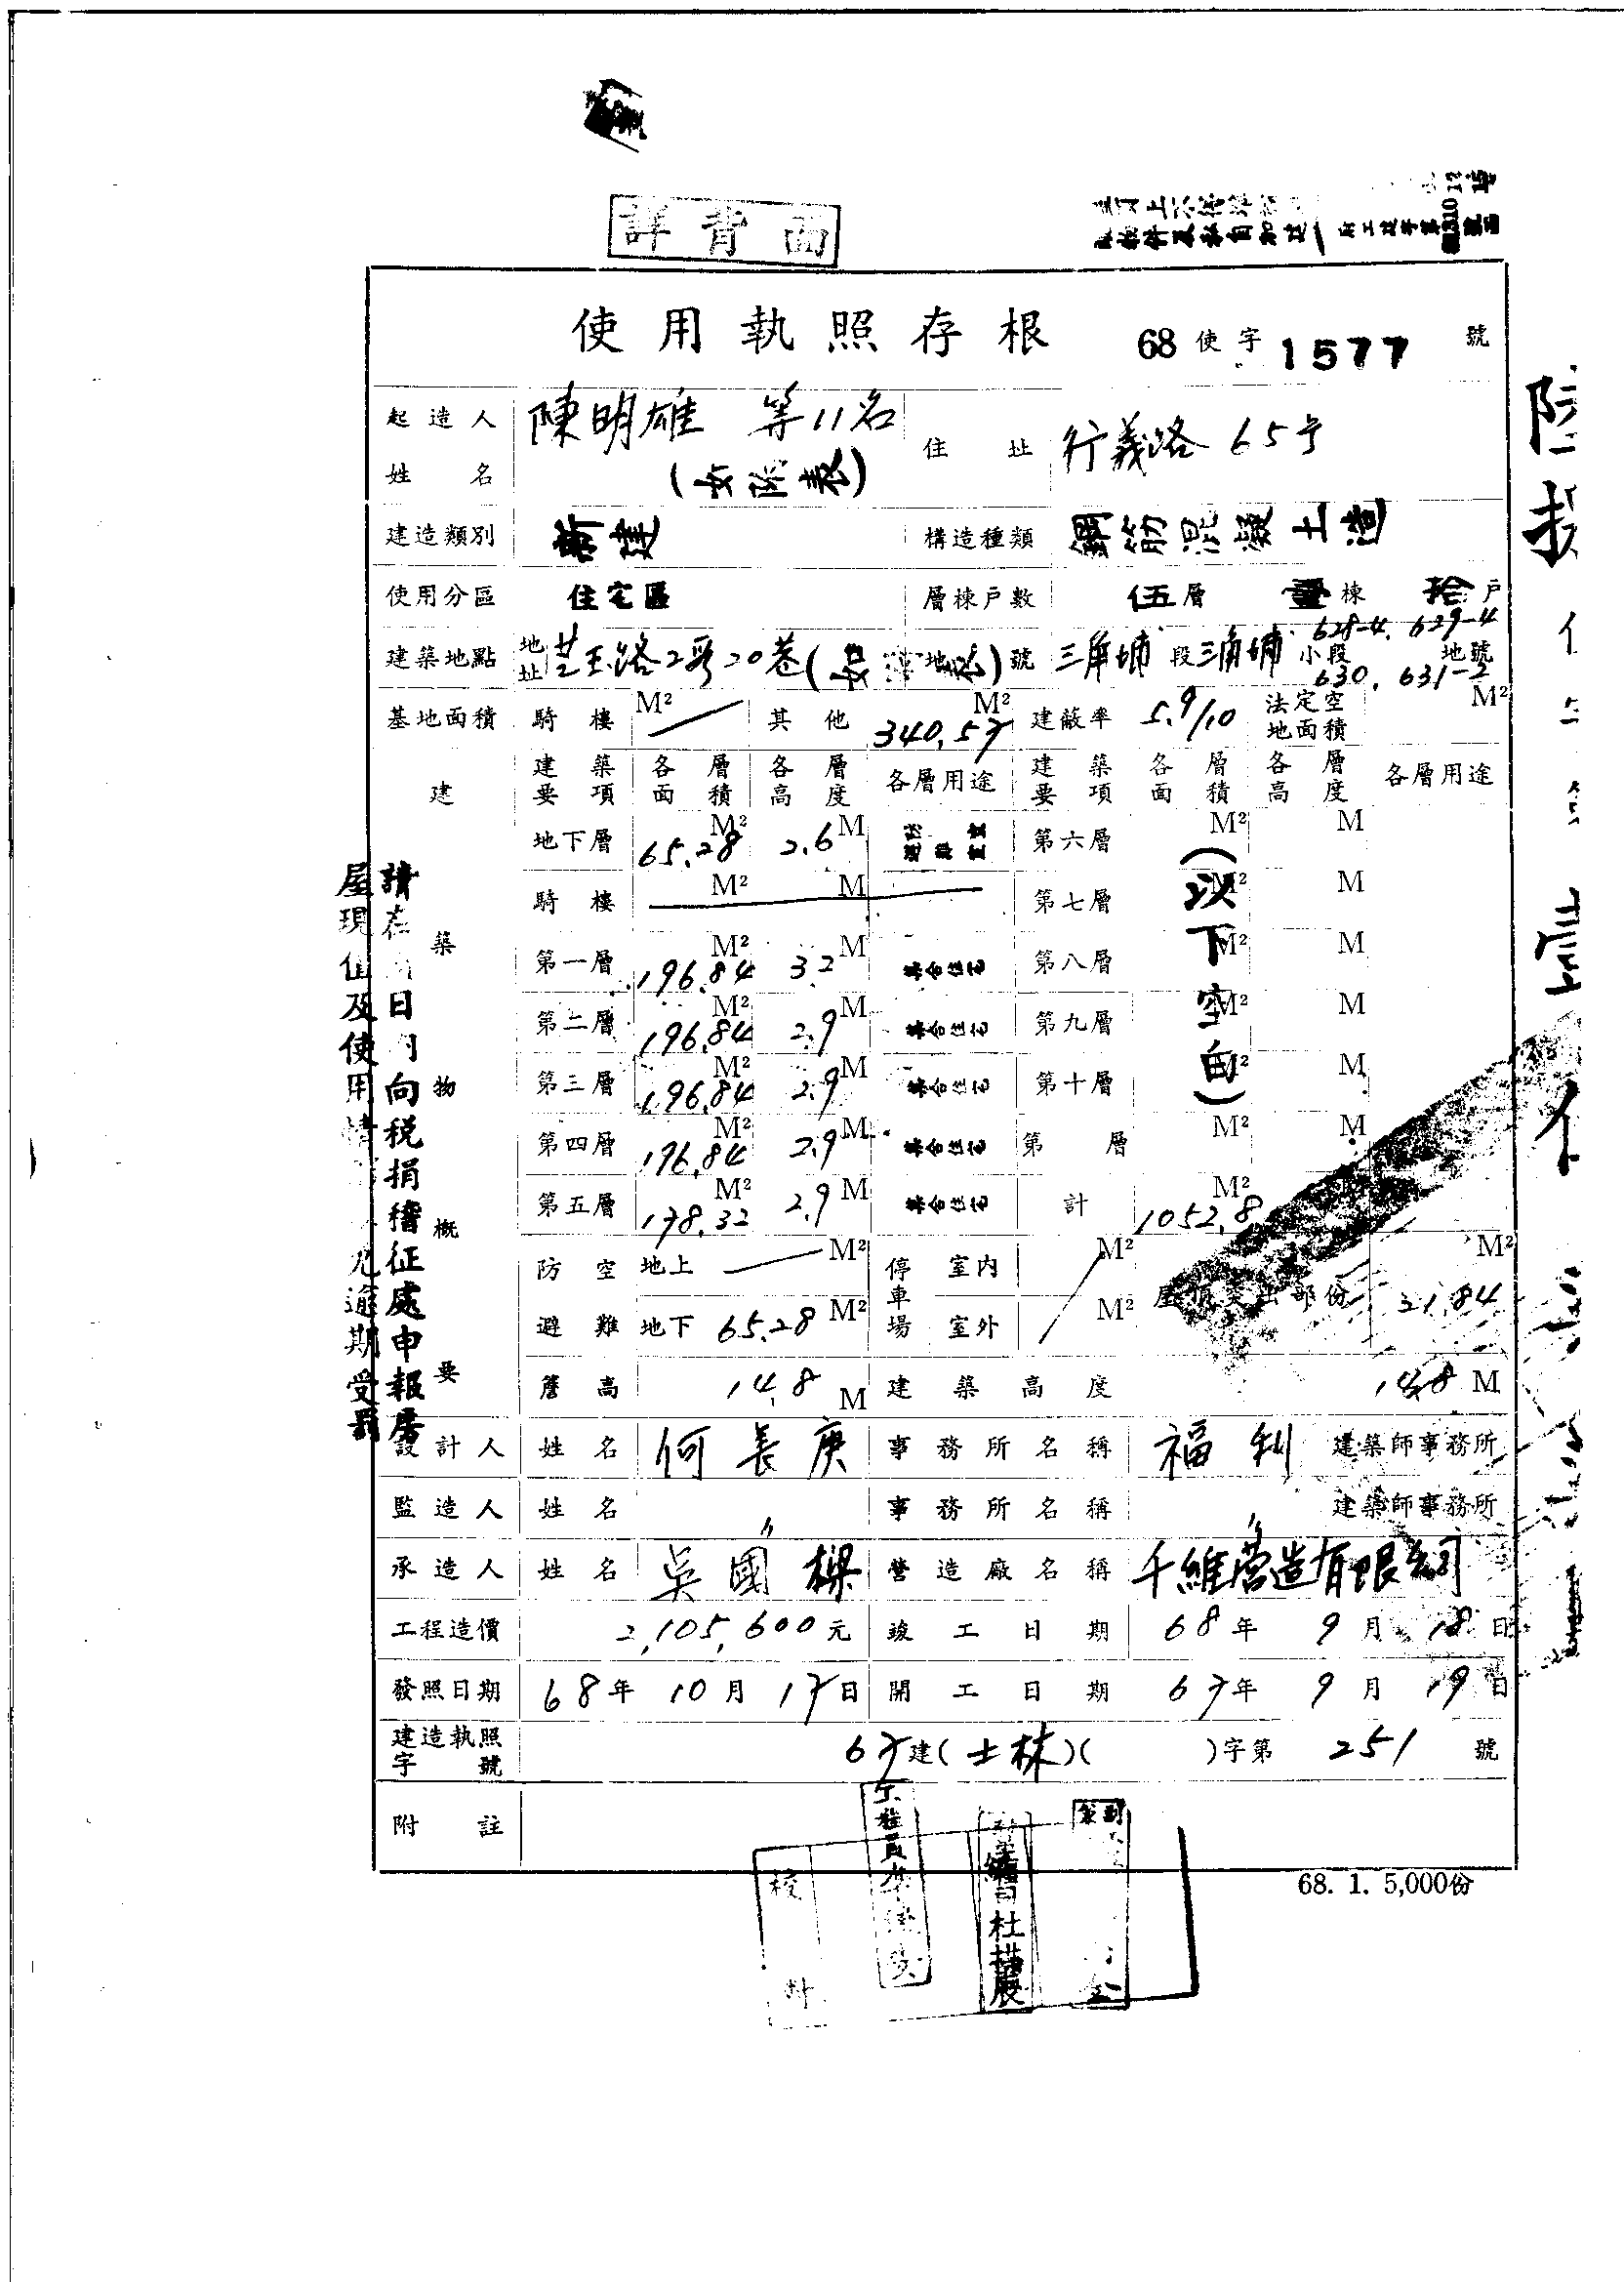 詳背面
使用執照存根 68使字 1577 號
起造人姓名 陳明雄 等11名 (如附表) 住址 行義路 65号
建造類別 新建 構造種類 鋼筋混凝土造
使用分區 住宅區 層棟戶數 伍層 壹棟 拾戶
建築地點 地址 芝玉路2段20巷 地號 三角埔段三角埔小段 628-4. 629-4 630. 631-2 地號
基地面積 騎樓 M² 其他 340.57 M² 建蔽率 5.9/10 法定空地面積 M²
建築要項 各層面積 各層高度 各層用途 建築要項 各層面積 各層高度 各層用途
建築物概要
地下層 65.28 M² 2.6 M 第六層 M² M
騎樓 M² M 第七層 M² M
第一層 196.84 M² 3.2 M 集合住宅 第八層 M² M
第二層 196.84 M² 2.9 M 集合住宅 第九層 M² M
第三層 196.84 M² 2.9 M 集合住宅 第十層 M² M
第四層 196.84 M² 2.9 M 集合住宅 第 層 M² M
第五層 178.32 M² 2.9 M 集合住宅 計 1052.8 M²
(以下空白)
防空避難 地上 M² 停車場 室內 M² 屋頂突出部份 21.84 M²
地下 65.28 M² 室外 M²
簷高 14.8 M 建築高度 14.8 M
設計人 姓名 何長庚 事務所名稱 福利 建築師事務所
監造人 姓名 〃 事務所名稱 〃 建築師事務所
承造人 姓名 吳國樑 營造廠名稱 千維營造有限公司
工程造價 2,105,600元 竣工日期 68年 9月 18日
發照日期 68年 10月 17日 開工日期 67年 9月 19日
建造執照字號 67建(士林)( )字第 251 號
附註
68. 1. 5,000份
校對